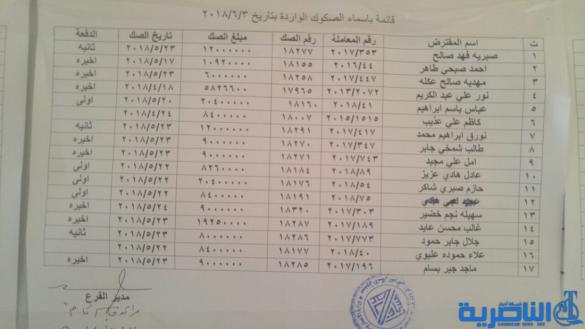 قائمة باسماء الصكوك الواردة بتاريخ ٢٠١٨/٦/٣
ت اسم المقترض رقم المعاملة رقم الصك مبلغ الصك تاريخ الصك الدفعة
١ صبريه فهد صالح ٢٠١٧/٣٥٣ ١٨٢٧٧ ١٢٠٠٠٠٠٠ ٢٠١٨/٥/٢٣ ثانيه
٢ احمد صبحي طاهر ٢٠١٦/٤٤ ١٨١٥٥ ١٠٩٢٠٠٠٠ ٢٠١٨/٥/١٧ اخيره
٣ مهديه صالح عكله ٢٠١٧/٤٤٧ ١٨٢٥٨ ٦٠٠٠٠٠٠ ٢٠١٨/٥/٢٣ اخيره
٤ نور علي عبد الكريم ٢٠١٣/٢٠٧٢ ١٧٩٦٥ ٥٨٢٦٦٠٠ ٢٠١٨/٤/١٨ اخيره
٥ عباس باسم ابراهيم ٢٠١٨/٤١ ١٨١٦٠ ٢٠٤٠٠٠٠٠ ٢٠١٨/٥/٢٠ اولى
٦ كاظم علي عذيب ٢٠١٥/١٥١٥ ١٨٠٠٧ ٨٤٠٠٠٠٠ ٢٠١٨/٤/٢٤
٧ نورق ابراهيم محمد ٢٠١٧/٤١٧ ١٨٢٩١ ١٢٠٠٠٠٠٠ ٢٠١٨/٥/٢٣ ثانيه
٨ طالب شمخي جابر ٢٠١٧/٣٤٧ ١٨٢٧٠ ٩٠٠٠٠٠٠ ٢٠١٨/٥/٢٣ اخيره
٩ امل علي مجيد ٢٠١٧/٧٤٣ ١٨٢٧١ ٩٠٠٠٠٠٠ ٢٠١٨/٥/٢٣ اخيره
١٠ عادل هادي عزيز ٢٠١٨/٨٩ ١٨١٨٤ ٨٢٦٠٠٠٠ ٢٠١٨/٥/٢٢ اولى
١١ حازم صبري شاكر ٢٠١٨/٥٤ ١٨١٧٦ ٢٠٤٠٠٠٠٠ ٢٠١٨/٥/٢٢ اولى
١٢ ٢٠١٨/٧٥ ١٨١٩١ ٨٤٠٠٠٠٠ ٢٠١٨/٥/٢٢ اولى
١٣ سهيله نجم خضير ٢٠١٧/٣٠٣ ١٨٣٢٠ ٩٠٠٠٠٠٠ ٢٠١٨/٥/٢٤ اخيره
١٤ غالب محسن عايد ٢٠١٧/١٨٩ ١٨٢٨٧ ١٩٢٥٠٠٠٠ ٢٠١٨/٥/٢٣ اخيره
١٥ جلال جابر حمود ٢٠١٧/٧٧٣ ١٨٢٨٦ ٨٠٠٠٠٠٠ ٢٠١٨/٥/٢٣ ثانيه
١٦ علاء حموده عليوي ٢٠١٨/٤٠ ١٨١٧٧ ٨٤٠٠٠٠٠ ٢٠١٨/٥/٢٢
١٧ ماجد جبر بسام ٢٠١٧/١٩٦ ١٨٢٨٥ ٩٠٠٠٠٠٠ ٢٠١٨/٥/٢٣ اخيره
مدير الفرع
شبكة اخبار
الناصرية
www.nasiriyah.org